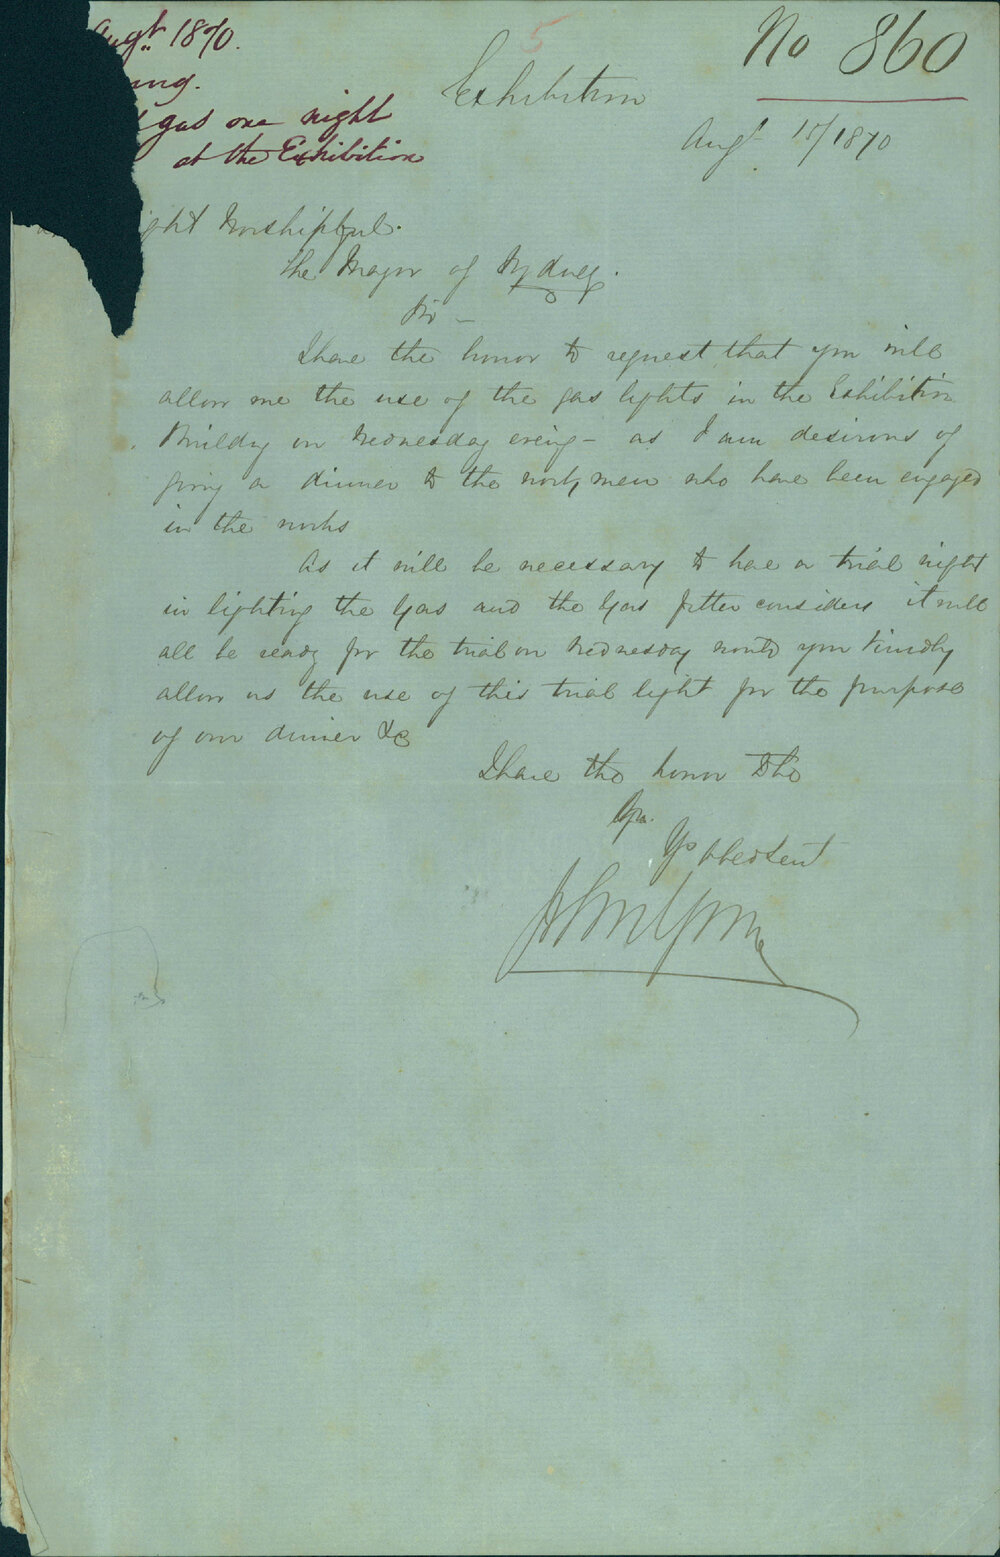 Augt 1870.
No 860
5
gas one night
at the Exhibition
Exhibition
Augt 15/1870
Worshipful.
The Mayor of Sydney.
Sir –
I have the honor to request that you will
allow me the use of the gas lights in the Exhibition
Building on Wednesday evening – as I am desirous of
giving a dinner to the workmen who have been engaged
in the works
As it will be necessary to have a trial night
in lighting the Gas and the Gas fitter considers it will
all be ready for the trial on Wednesday would you kindly
allow us the use of this trial light for the purpose
of our dinner &c
I have the honor to be
Sir.
Yr obedient